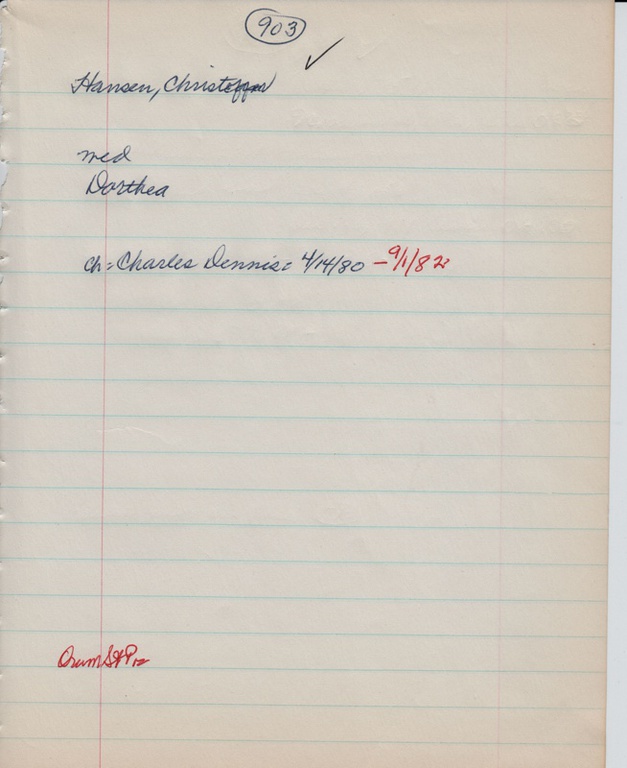 903
Hansen, Christoffer
med
Dorthea
ch = Charles Dennis: 4/14/80 - 9/1/82
Orum